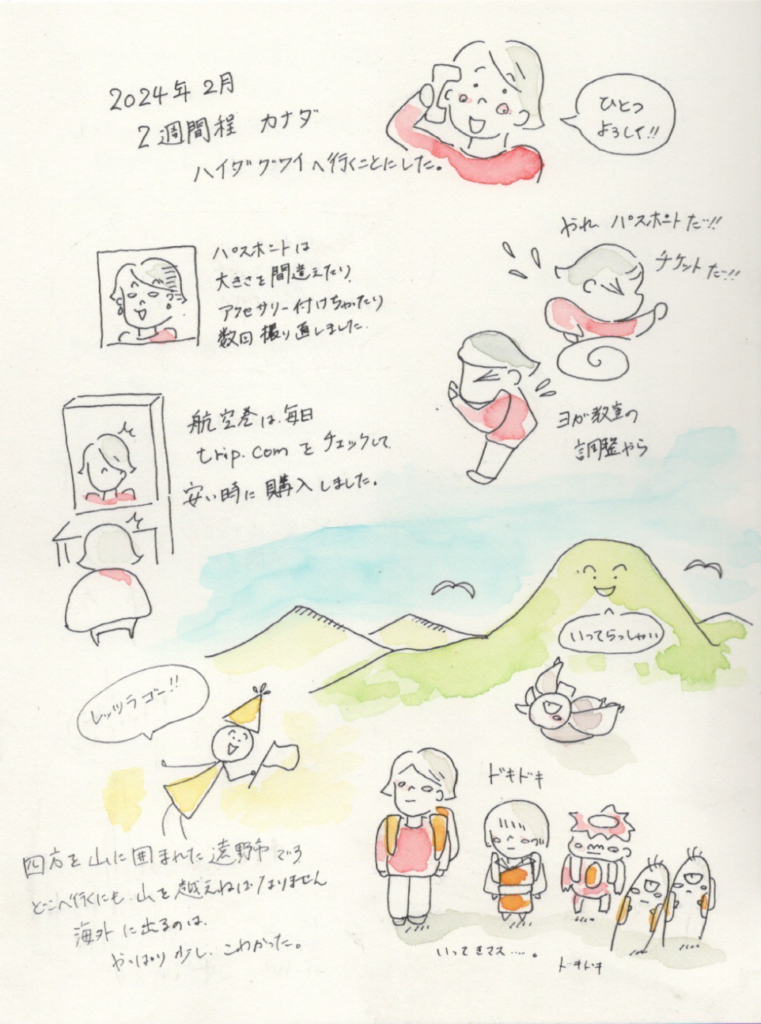 2024年2月
2週間程 カナダ
ハイダグワイへ行くことにした。
ひとつ
よろしく!!
やれ パスポートだ…!!
チケットだ…!!
パスポートは
大きさを間違えたり
アクセサリー付けちゃったり
数回撮り直しました.
ヨガ教室の
調整やら
航空巻は毎日
trip.comをチェックして
安い時に購入しました。
いってらっしゃい
レッツラゴー!!
ドキドキ
四方を山に囲まれた遠野市
どこへ行くにも 山を越えねばなりません
海外に出るのは、
やっぱり少し、こわかった。
いってきマス……。
ドキドキ